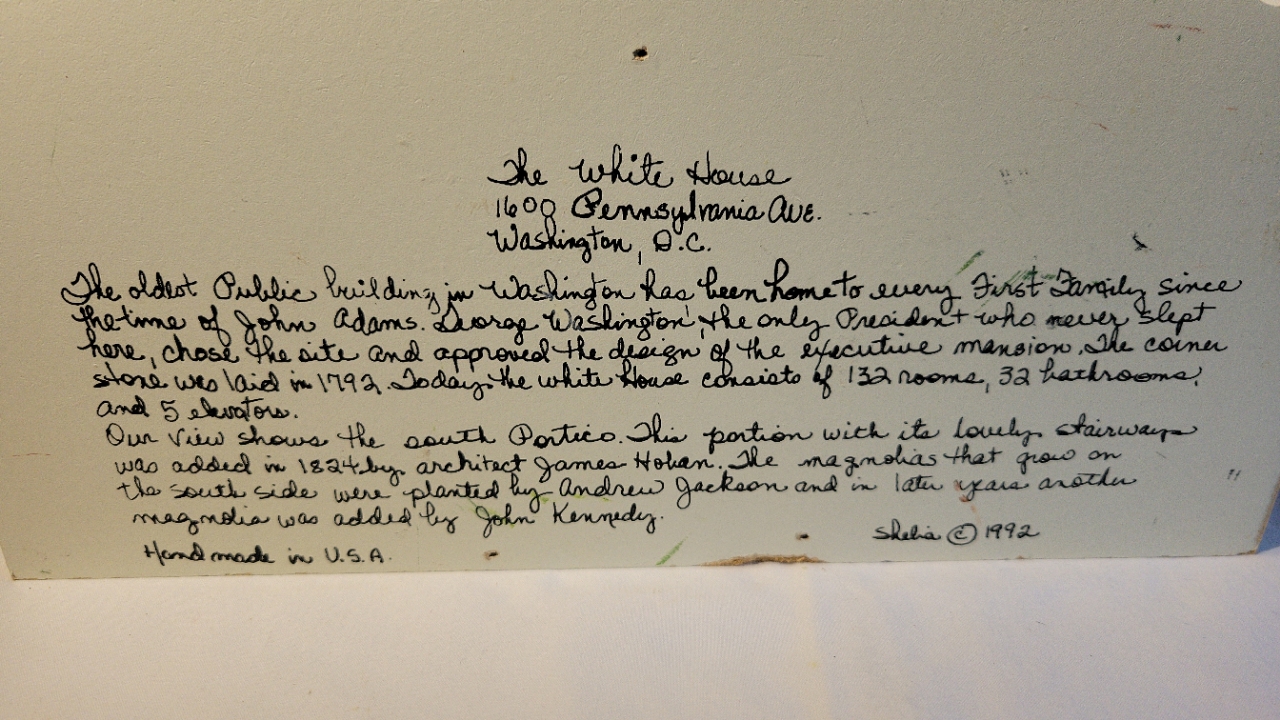 The White House
1600 Pennsylvania Ave.
Washington, D.C.
The oldest Public building in Washington has been home to every First Family since
the time of John Adams. George Washington, the only President who never slept
here, chose the site and approved the design of the executive mansion. The corner
stone was laid in 1792. Today, the white House consists of 132 rooms, 32 bathrooms,
and 5 elevators.
Our view shows the south Portico. This portion with its lovely stairways
was added in 1824 by architect James Hoban. The magnolias that grow on
the south side were planted by Andrew Jackson and in later years another
magnolia was added by John Kennedy.
Shelia © 1992
Hand made in U.S.A.